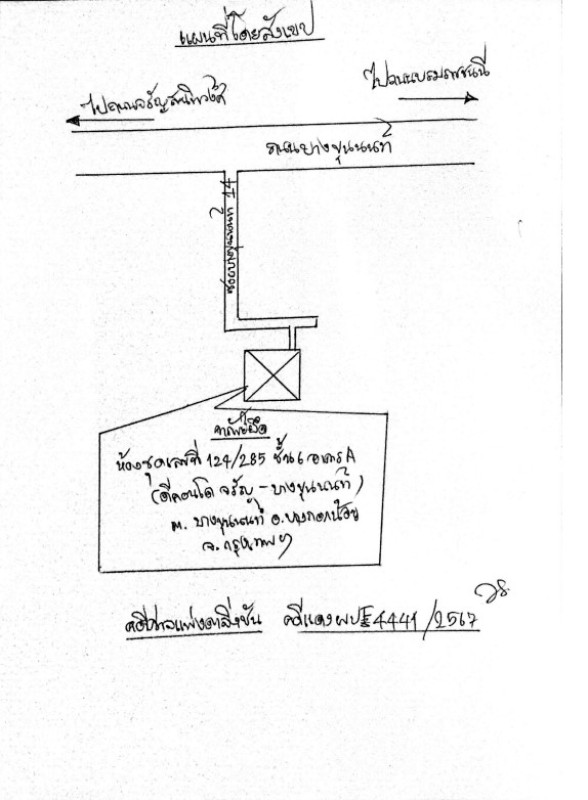 แผนที่โดยสังเขป
ไปถนนบรมราชชนนี
ไปถนนจรัญสนิทวงศ์
ถนนบางขุนนนท์
ซอยบางขุนนนท์ 14
ทรัพย์ยึด
ห้องชุดเลขที่ 124/285 ชั้น 6 อาคาร A
(ดีคอนโด จรัญ - บางขุนนนท์)
ต. บางขุนนนท์ อ. บางกอกน้อย
จ. กรุงเทพฯ
คดีศาลแพ่งตลิ่งชัน คดีแดง ผบE4441/2567